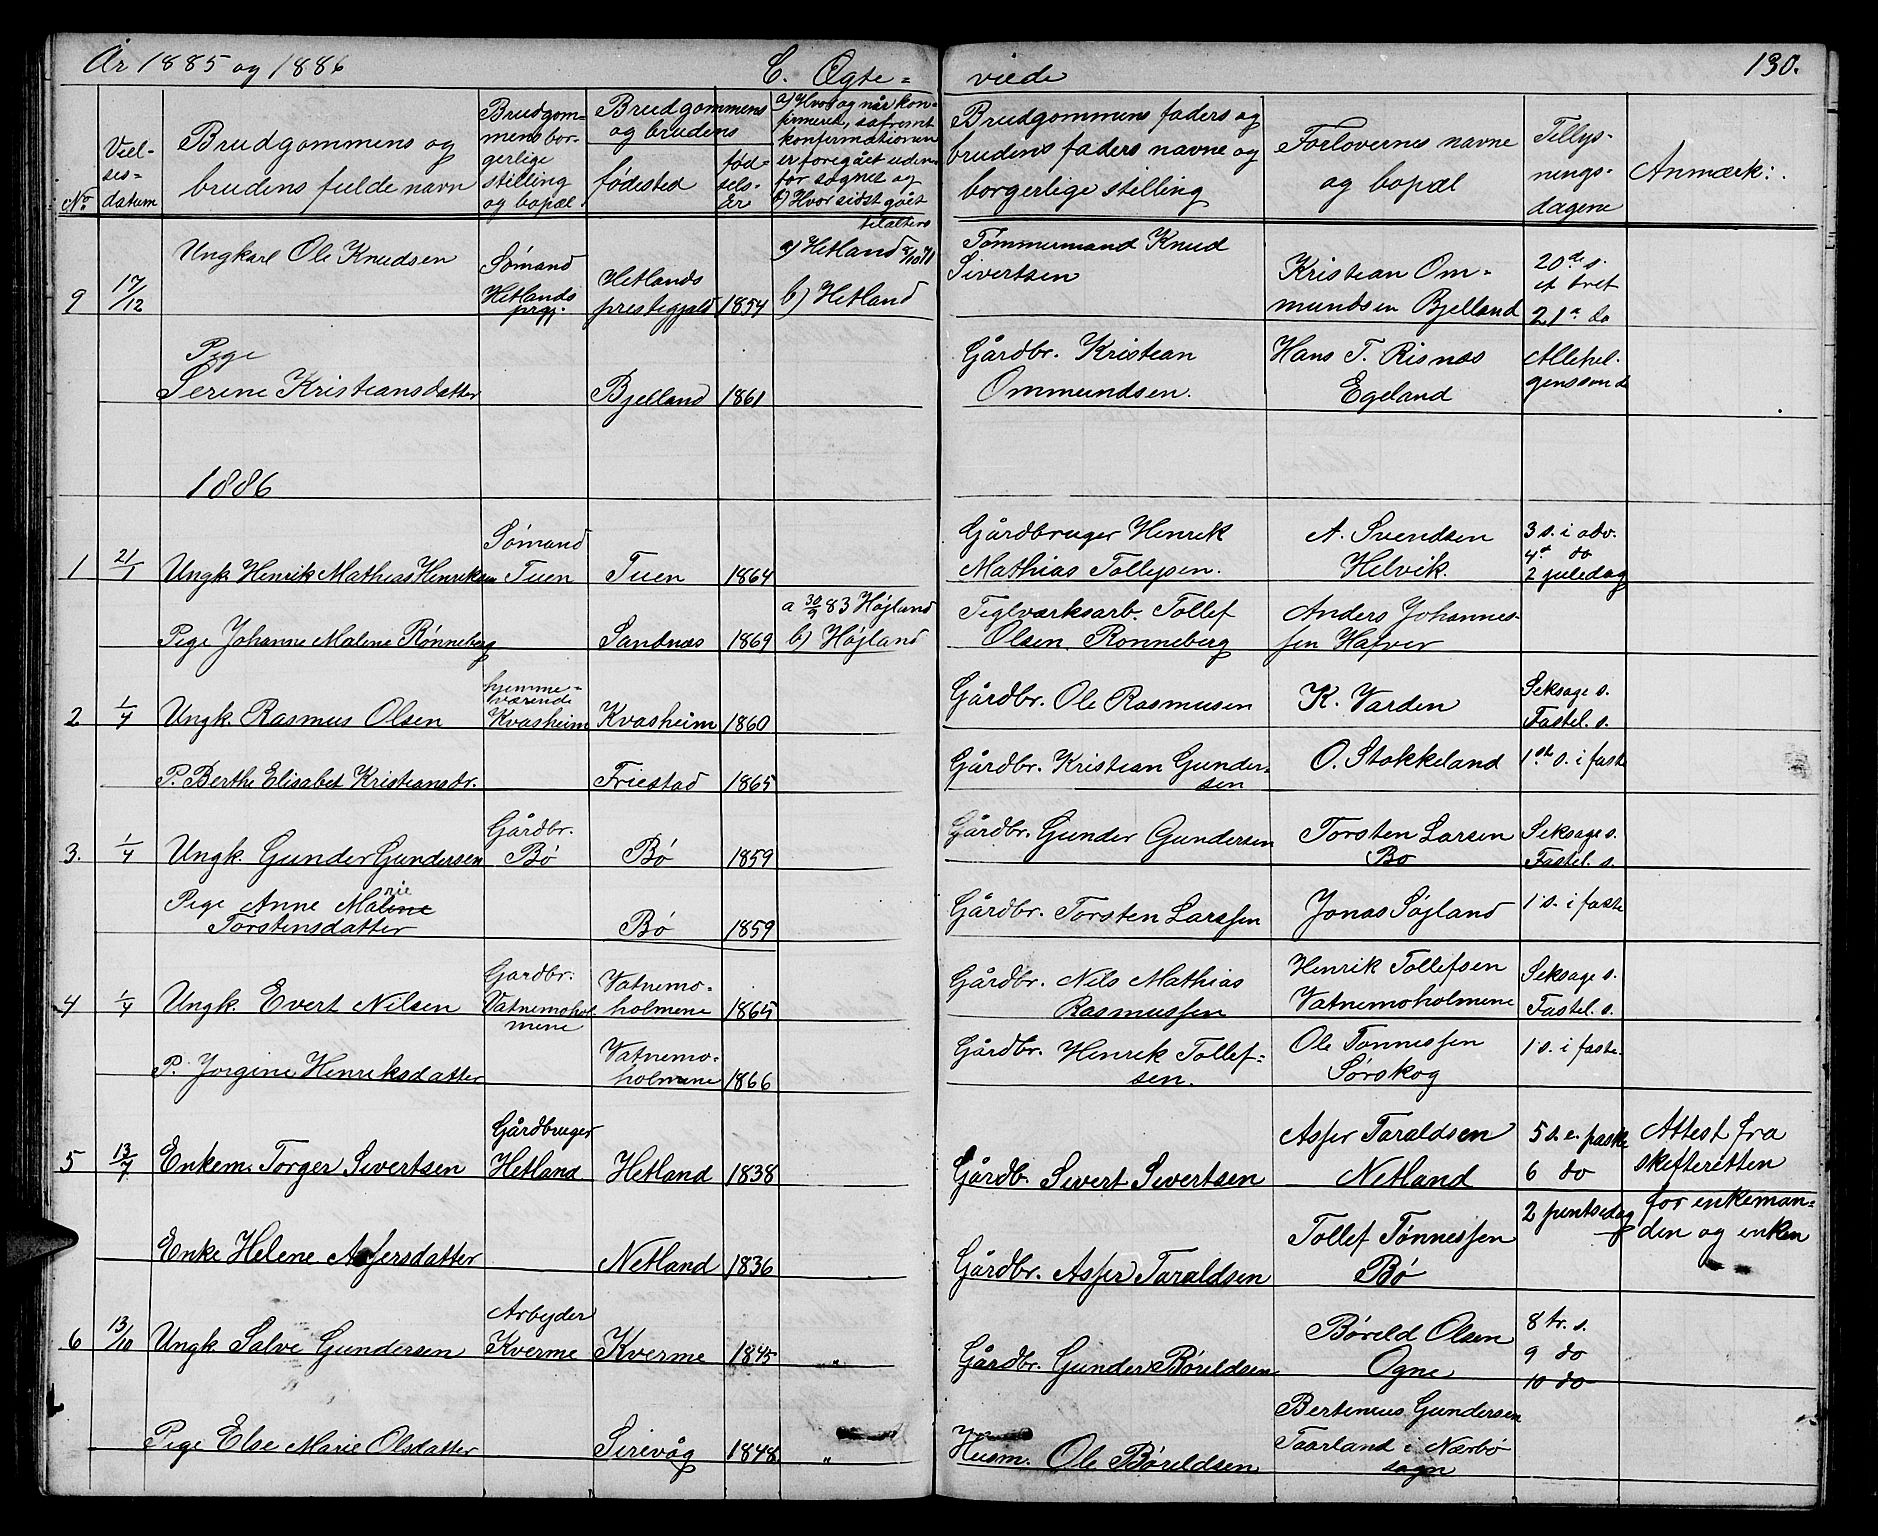 År 1885 og 1886
C. Ægte=
viede
130.
No
Viel-
ses-
datum
Brudgommens og
brudens fulde navn
Brudgom-
mens bor-
gerlige
stilling
og bopæl
Brudgommens
og brudens
fødested
fød-
sels-
år
a) Hvor og når kon-
firmeret, såfremt
konfirmationen
er foregået uden-
for sognet og
b) Hvor sidst gået
til alters
Brudgommens faders og
brudens faders navne og
borgerlige stilling
Forlovernes navne
og bopæl
Tillys-
nings-
dagene
Anmærk:
9
17/12
Ungkarl Ole Knudsen
Sømand
Hetlands
prgj.
Hetlands
prestegjæld
1854
a) Hetland 8/10 71
b) Hetland
Tømmermand Knud
Sivertsen
Kristian Om-
mundsen Bjelland
20de s.
et tref
21a do
Pige
Serine Kristiansdatter
Bjelland
1861
Gårdbr. Kristian
Ommundsen.
Hans T. Risnes
Egeland
Allehel-
genssønd
1886
1
21/1
Ungk. Henrik Mathias Henriksen
Sømand
Tuen
Tuen
1864
Gårdbruger Henrik
Mathias Tollefsen.
A. Svendsen
Helvik.
3 s. i adv.
4a do
2 juledag
Pige Johanne Malene Rønneberg
Sandnæs
1869
a 30/9 83 Højland
b) Højland
Teglværksarb. Tollef
Olsen Rønneberg
Anders Johannes-
sen Hafver
2
1/4
Ungk. Rasmus Olsen
hjemme-
værende
Kvasheim
Kvasheim
1860
Gårdbr. Ole Rasmusen
K. Varden
Seksage s.
Fastel. s.
P. Berthe Elisabet Kristiansdr.
Friestad
1865
Gårdbr. Kristian Gunder-
sen
O. Stokkeland
1ste s. i faste
3.
1/4
Ungk. Gunder Gundersen
Gårdbr.
Bø
Bø
1859
Gårdbr. Gunder Gundersen
Torsten Larsen
Bø
Seksage s.
Fastel. s.
Pige Anne Malene
rie
Torstensdatter
Bø
1859
Gårdbr. Torsten Larssen
Jonas Søjland
1 s. i faste
4
1/4
Ungk. Evert Nilsen
Gårdbr.
Vatnemohol
mene
Vatnemo-
holmene
1865
Gårdbr. Nils Mathias
Rasmussen
Henrik Tollefsen
Vatnemoholmene
Seksage s.
Fastel. s.
P. Jorgine Henriksdatter
Vatnemo-
holmene
1866
Gårdbr. Henrik Tollef-
sen.
Ole Tønnessen
Sørskog
1 s. i faste.
5
13/7
Enkem. Torger Sivertsen
Gårdbruger
Hetland
Hetland
1838
Gårdb. Sivert Sivertsen
Asser Taraldsen
Netland
5 s. e. paske
6 do
Attest fra
skifteretten
Enke Helene Assersdatter
Netland
1836
Gårdbr. Asser Taraldsen
Tollef Tønnessen
Bø
2 pintsedag
for enkeman-
den og enken
6
13/10
Ungk. Salve Gundersen
Arbejder
Kverme
Kverme
1845
"
Gårdbr. Gunder Børildsen
Børild Olsen
Ogne
8 tr. s.
9 do
10 do
Pige Else Marie Olsdatter
Sirevåg
1848
"
Husm. Ole Børildsen
Bertinius Gundersen
Taarland i Nærbø
sogn